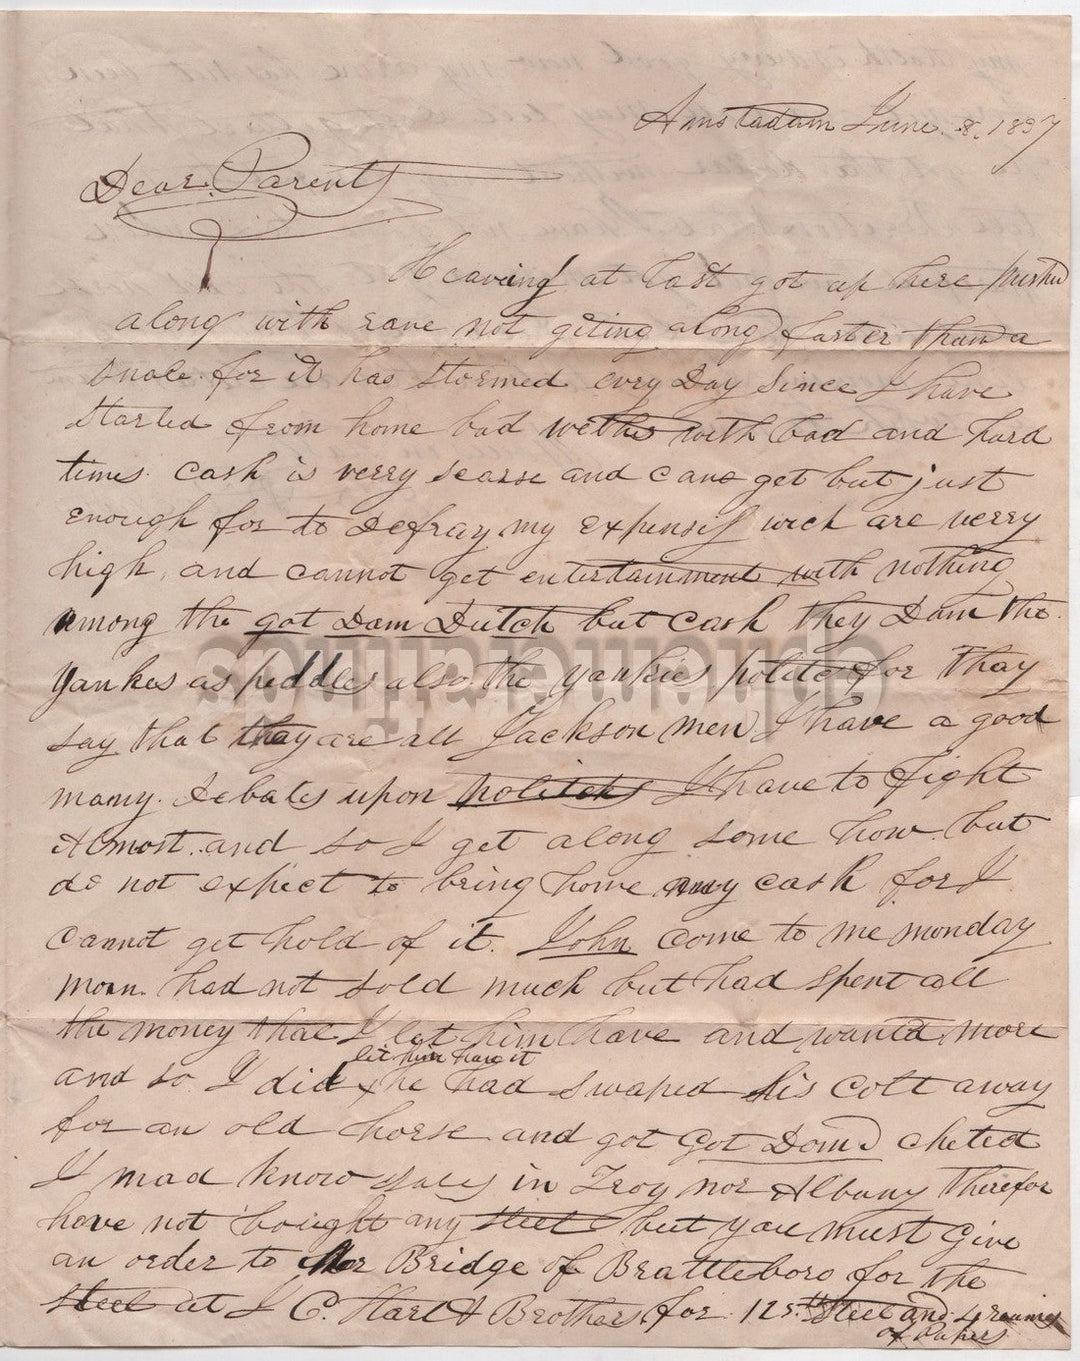 Amstadum June 8, 1837
Dear Parents
Heaveing at last got up here
along with rane not giting along faster than a
snale for it has stormed evry Day Since I have
started from home bad wether with bad and hard
times. Cash is verry scarse and cane get but just
enough for to Defray my expensis wich are verry
high, and cannot get entertainment with nothing
among the got Dam Dutch but cash they Dam the
Yankes as peddles also the yankies polite for thay
say that thay are all Jackson men I have a good
many Debates upon politicks I have to Fight
Almost and so I get along some how but
do not expect to bring home any cash for I
cannot get hold of it. John come to me monday
morn. had not sold much but had spent all
the money that I let him have and wanted more
let him have it
and so I did he had swaped his Colt away
for an old horse and got Got Dam'd cheted
I mad know sales in Troy nor Albany therefor
have not bought any steel but you must Give
an order to Mr Bridge of Brattleboro for the
steel at J C. Hart & Brothers for 125 Steel and 4 reams
of Papers
gramarfines